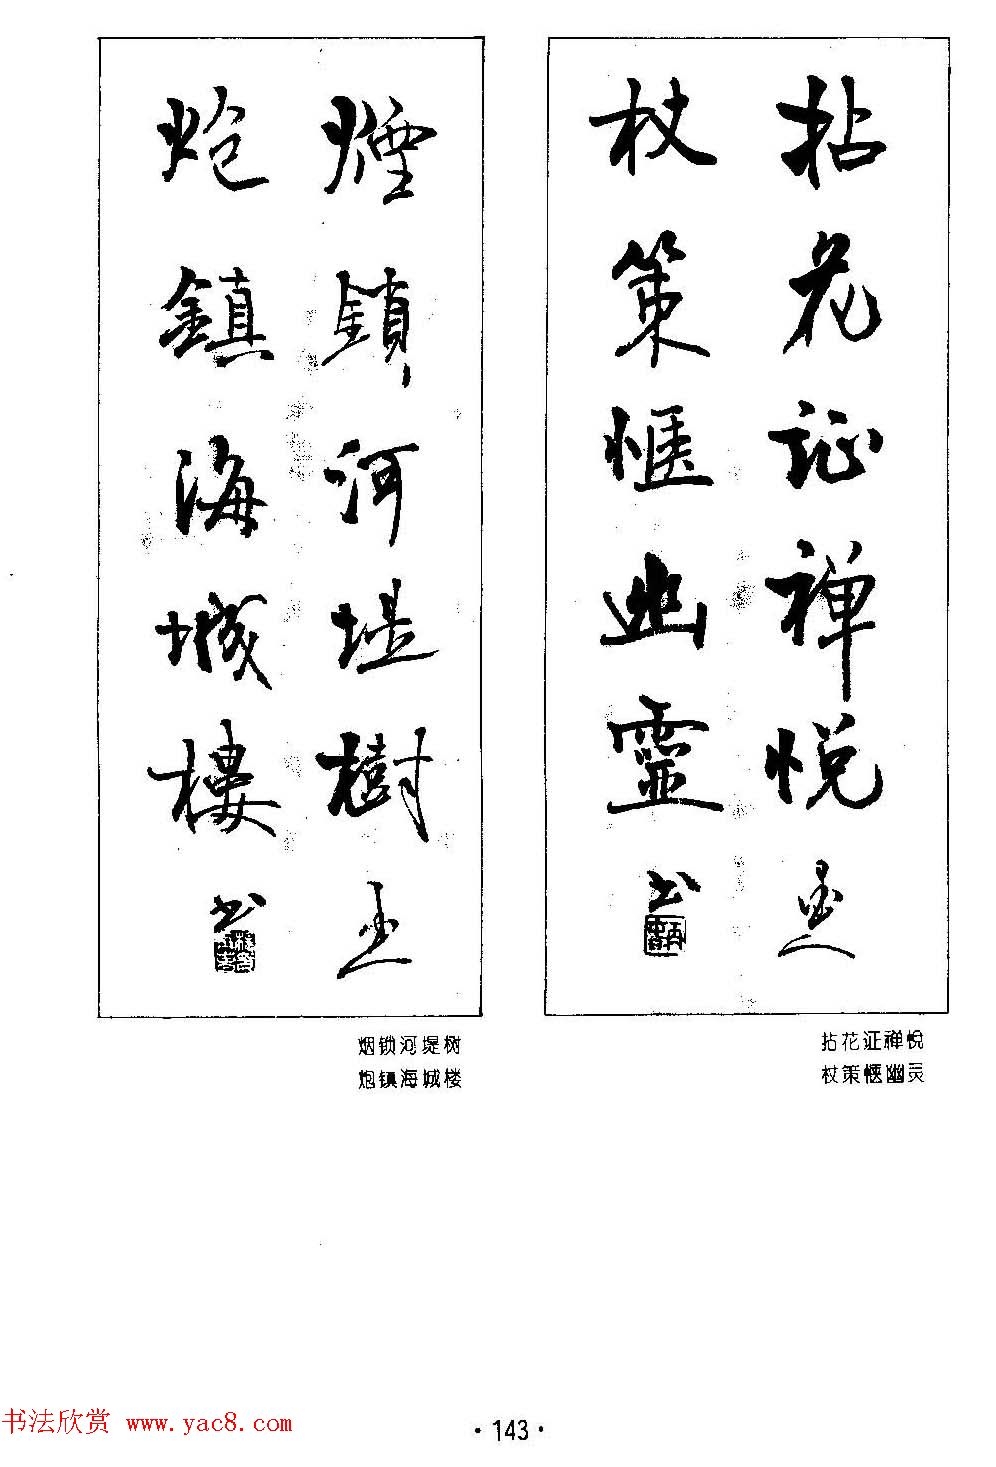 拈花证禅悦
杖策惬幽灵
书
煙鎖河堤樹
炮鎮海城樓
书
拈花证禅悦
杖策惬幽灵
烟锁河堤树
炮镇海城楼
书法欣赏 www.yac8.com
·143·